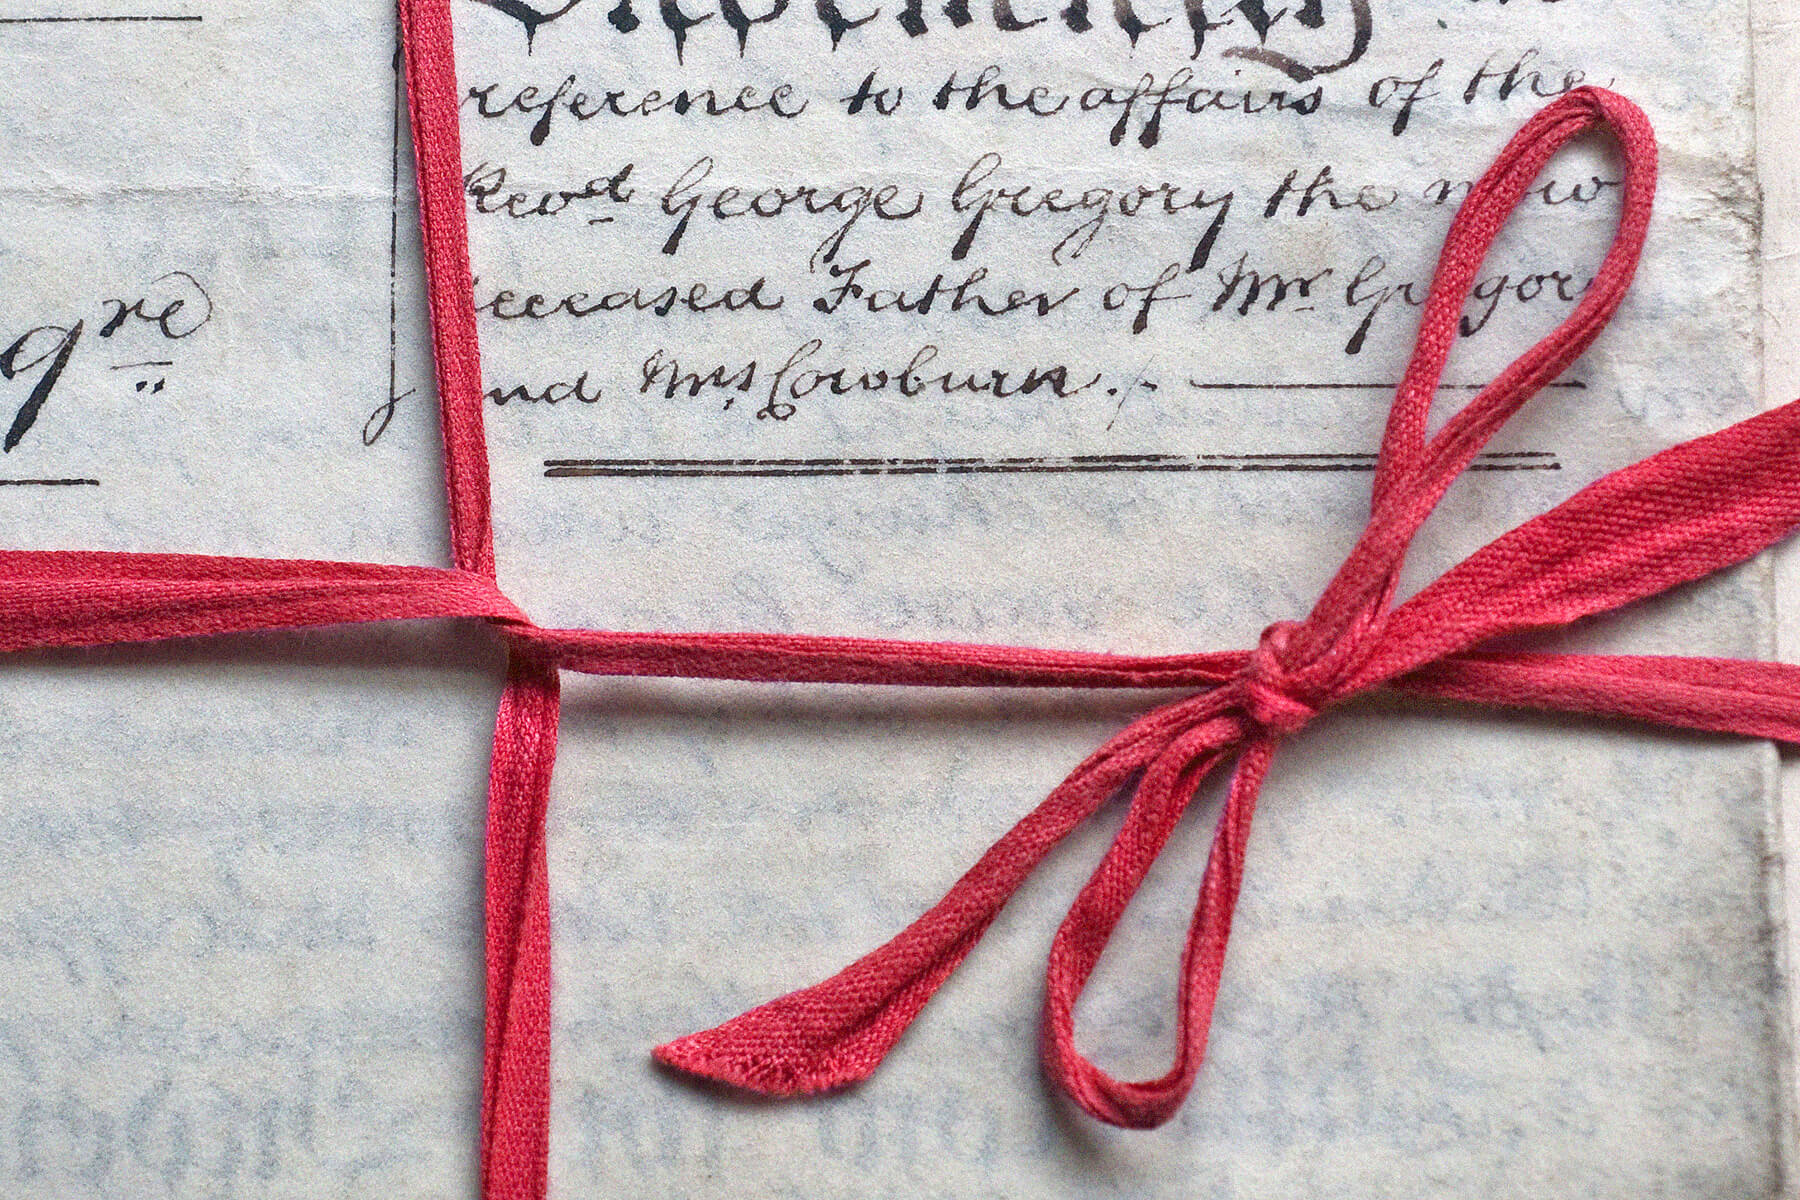 Indemnity in
reference to the affairs of the
Revd George Gregory the now
eceased Father of Mr Gregory
qre
nd Mrs Cowburn.